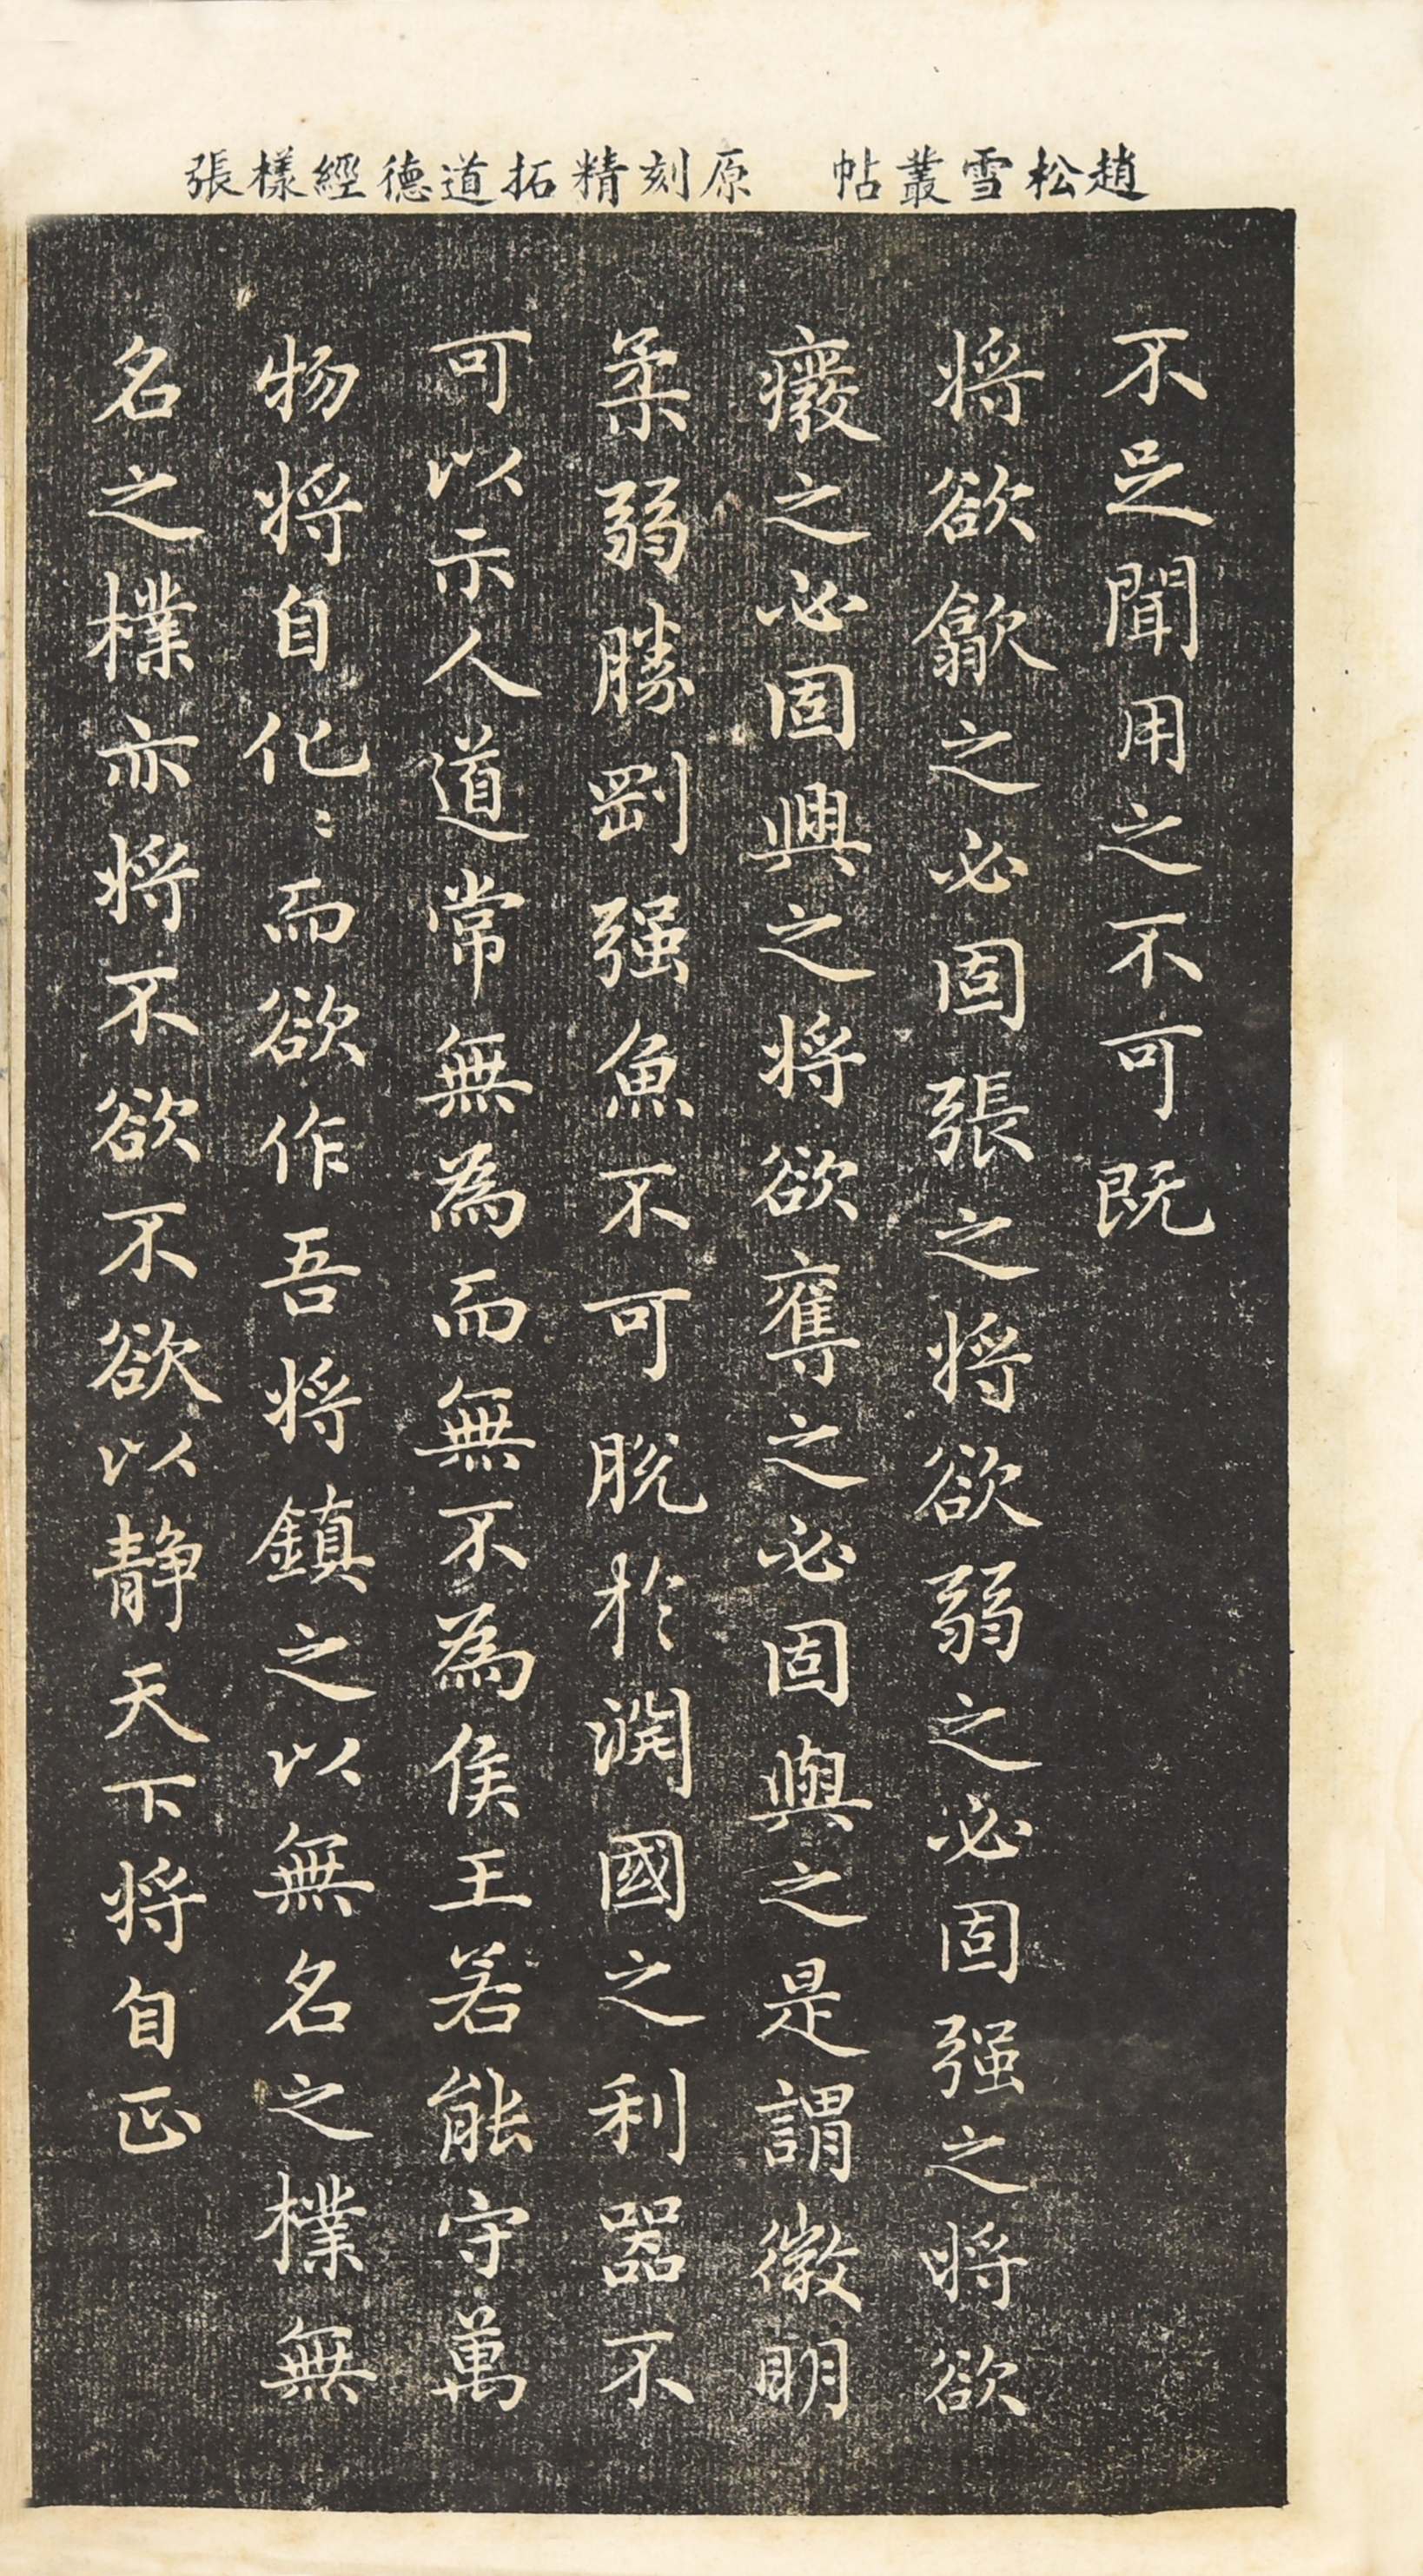 趙松雪叢帖　原刻精拓道德經樣張
不足聞用之不可既
将欲歙之必固張之将欲弱之必固强之将欲
癈之必固興之将欲奪之必固與之是謂微明
柔弱勝剛强魚不可脱於淵國之利器不
可以示人道常無為而無不為侯王若能守萬
物将自化〻而欲作吾将鎮之以無名之樸無
名之樸亦将不欲不欲以静天下将自正